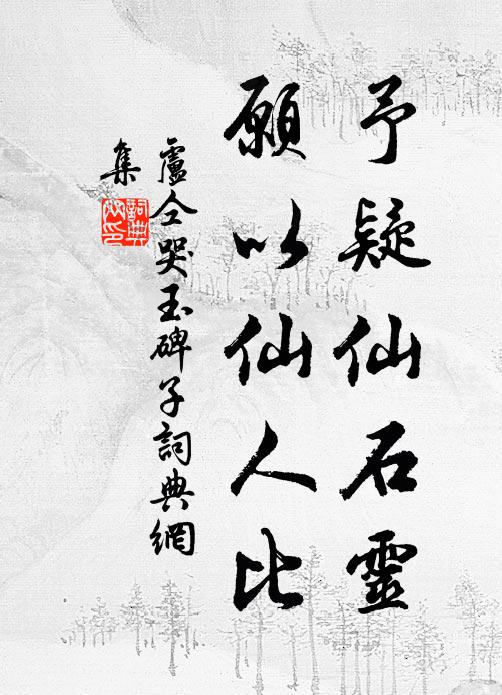 予疑仙石靈
願以仙人比
盧仝哭玉碑子詞典網
集
詞典網印